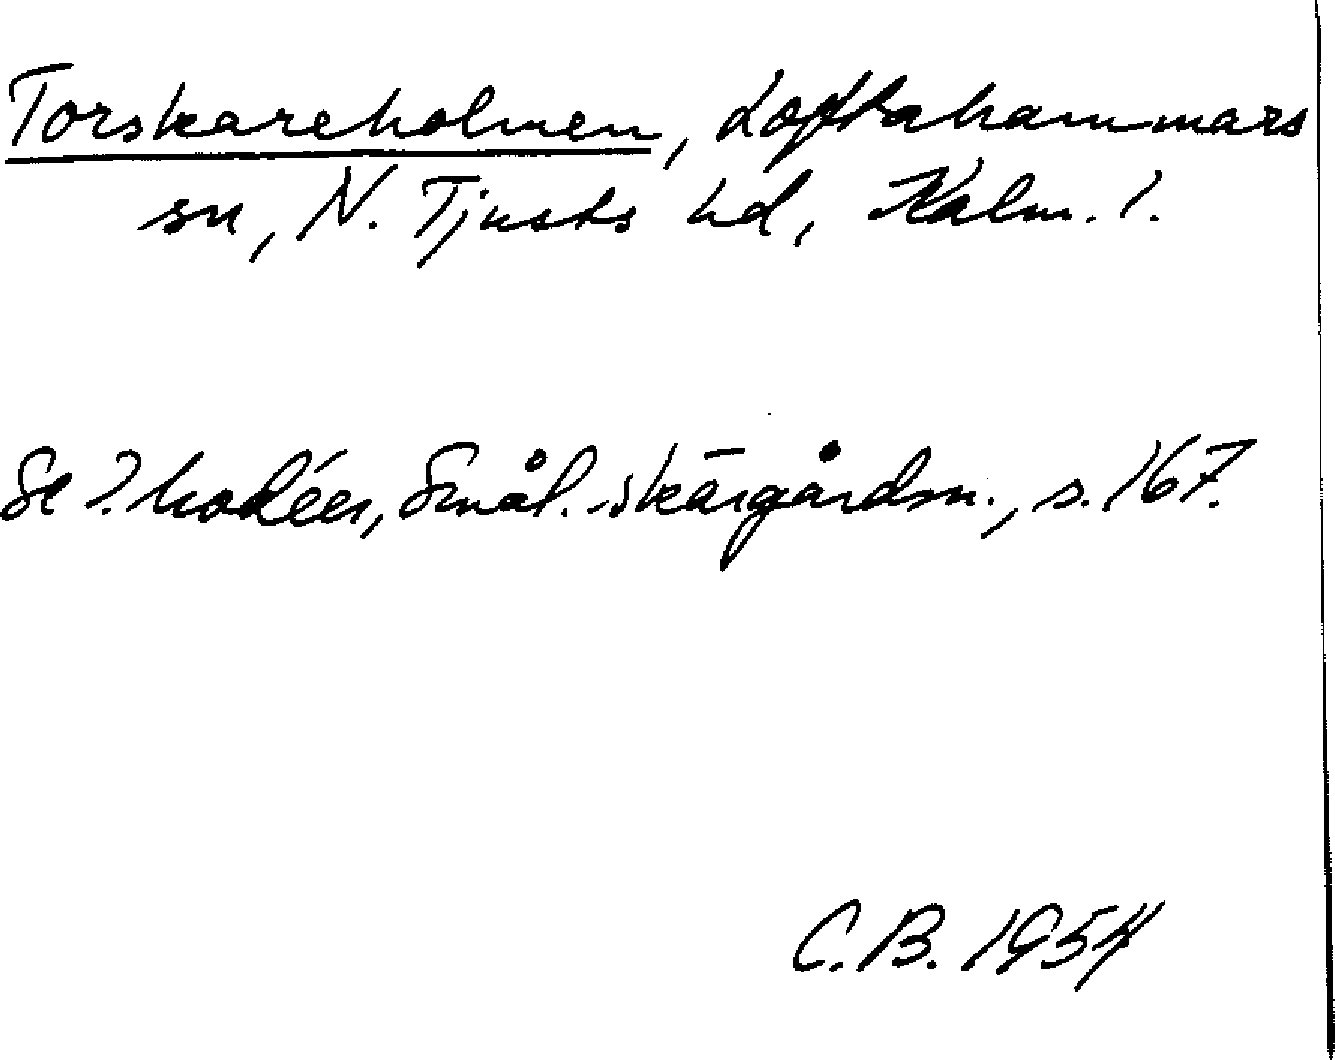 Torskareholmen, Loftahammars
sn, N. Tjusts hd, Kalm. l.
Se I. Modéer, Smål. skärgårdsn., s. 167.
C.B. 1954